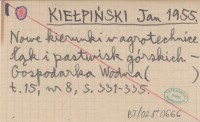 KIEŁPIŃSKI Jan 1955.
Nowe kierunki w agrotechnice
łąk i pastwisk górskich -
Gospodarka Wodna( )
t. 15, nr 8, s. 331-335.
BT/02.1